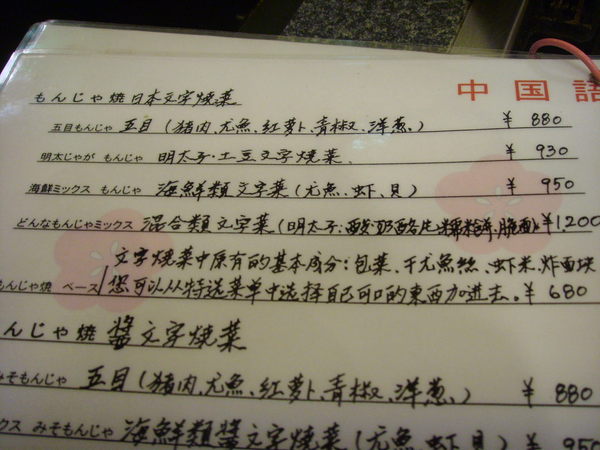 中国語
もんじゃ焼 日本文字燒菜
五目もんじゃ 五目(猪肉、尤魚、红萝卜、青椒、洋葱、) ¥ 880
明太じゃが もんじゃ 明太子·土豆文字燒菜 ¥ 930
海鮮ミックス もんじゃ 海鮮類文字菜(尤魚、虾、貝) ¥ 950
どんなもんじゃミックス 混合類文字菜(明太子、酸奶酪片、糯米餅、脆面) ¥1,200
文字燒菜中原有的基本成分:包菜、干尤魚絲、虾米、炸面块
もんじゃ焼 ベース 您可以从特选菜单中选择自己可口的東西加进去。 ¥ 680
んじゃ焼 醬文字燒菜
みそもんじゃ 五目(猪肉、尤魚、红萝卜、青椒、洋葱、) ¥ 880
ックス みそもんじゃ 海鮮類醬文字燒菜(尤魚、虾、貝) ¥ 950